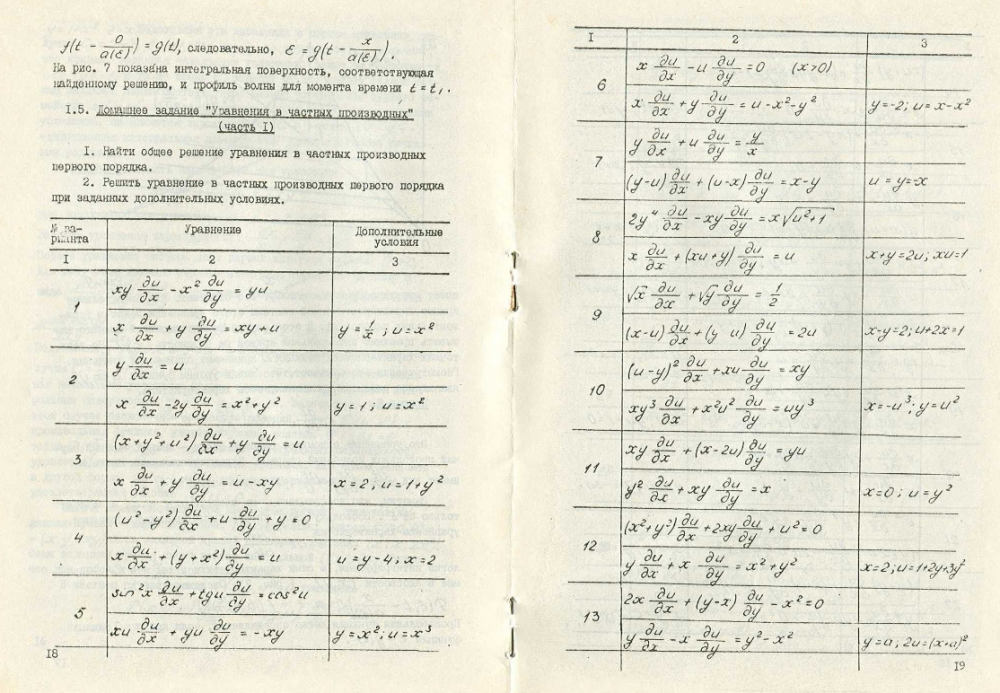 f(t - 0/a(ε)) = g(t), следовательно, ε = g(t - x/a(ε)).
На рис. 7 показана интегральная поверхность, соответствующая
найденному решению, и профиль волны для момента времени t = t₁.
I.5. Домашнее задание "Уравнения в частных производных"
(часть I)
I. Найти общее решение уравнения в частных производных
первого порядка.
2. Решить уравнение в частных производных первого порядка
при заданных дополнительных условиях.
№ ва-
рианта Уравнение Дополнительные
условия
I 2 3
1
xy ∂u/∂x - x² ∂u/∂y = yu
x ∂u/∂x + y ∂u/∂y = xy + u y = 1/x ; u = x²
2
y ∂u/∂x = u
x ∂u/∂x - 2y ∂u/∂y = x² + y² y = 1 ; u = x²
3
(x + y² + u²) ∂u/∂x + y ∂u/∂y = u
x ∂u/∂x + y ∂u/∂y = u - xy x = 2 ; u = 1 + y²
4
(u² - y²) ∂u/∂x + u ∂u/∂y + y = 0
x ∂u/∂x + (y + x²) ∂u/∂y = u u = y - 4 ; x = 2
5
sin²x ∂u/∂x + tgu ∂u/∂y = cos²u
xu ∂u/∂x + yu ∂u/∂y = -xy y = x² ; u = x³
18
I 2 3
6
x ∂u/∂x - u ∂u/∂y = 0 (x > 0)
x ∂u/∂x + y ∂u/∂y = u - x² - y² y = -2 ; u = x - x²
7
y ∂u/∂x + u ∂u/∂y = y/x
(y - u) ∂u/∂x + (u - x) ∂u/∂y = x - y u = y = -x
8
2y⁴ ∂u/∂x - xy ∂u/∂y = x√(u² + 1)
x ∂u/∂x + (xu + y) ∂u/∂y = u x + y = 2u ; xu = 1
9
√x ∂u/∂x + √y ∂u/∂y = 1/2
(x - u) ∂u/∂x + (y u) ∂u/∂y = 2u x - y = 2 ; u + 2x = 1
10
(u - y)² ∂u/∂x + xu ∂u/∂y = xy
xy³ ∂u/∂x + x²u² ∂u/∂y = uy³ x = -u³ ; y = u²
11
xy ∂u/∂x + (x - 2u) ∂u/∂y = yu
y² ∂u/∂x + xy ∂u/∂y = x x = 0 ; u = y²
12
(x² + y²) ∂u/∂x + 2xy ∂u/∂y + u² = 0
y ∂u/∂x + x ∂u/∂y = x² + y² x = 2 ; u = 1 + 2y + 3y²
13
2x ∂u/∂x + (y - x) ∂u/∂y - x² = 0
y ∂u/∂x - x ∂u/∂y = y² - x² y = a ; 2u = (x + a)²
19